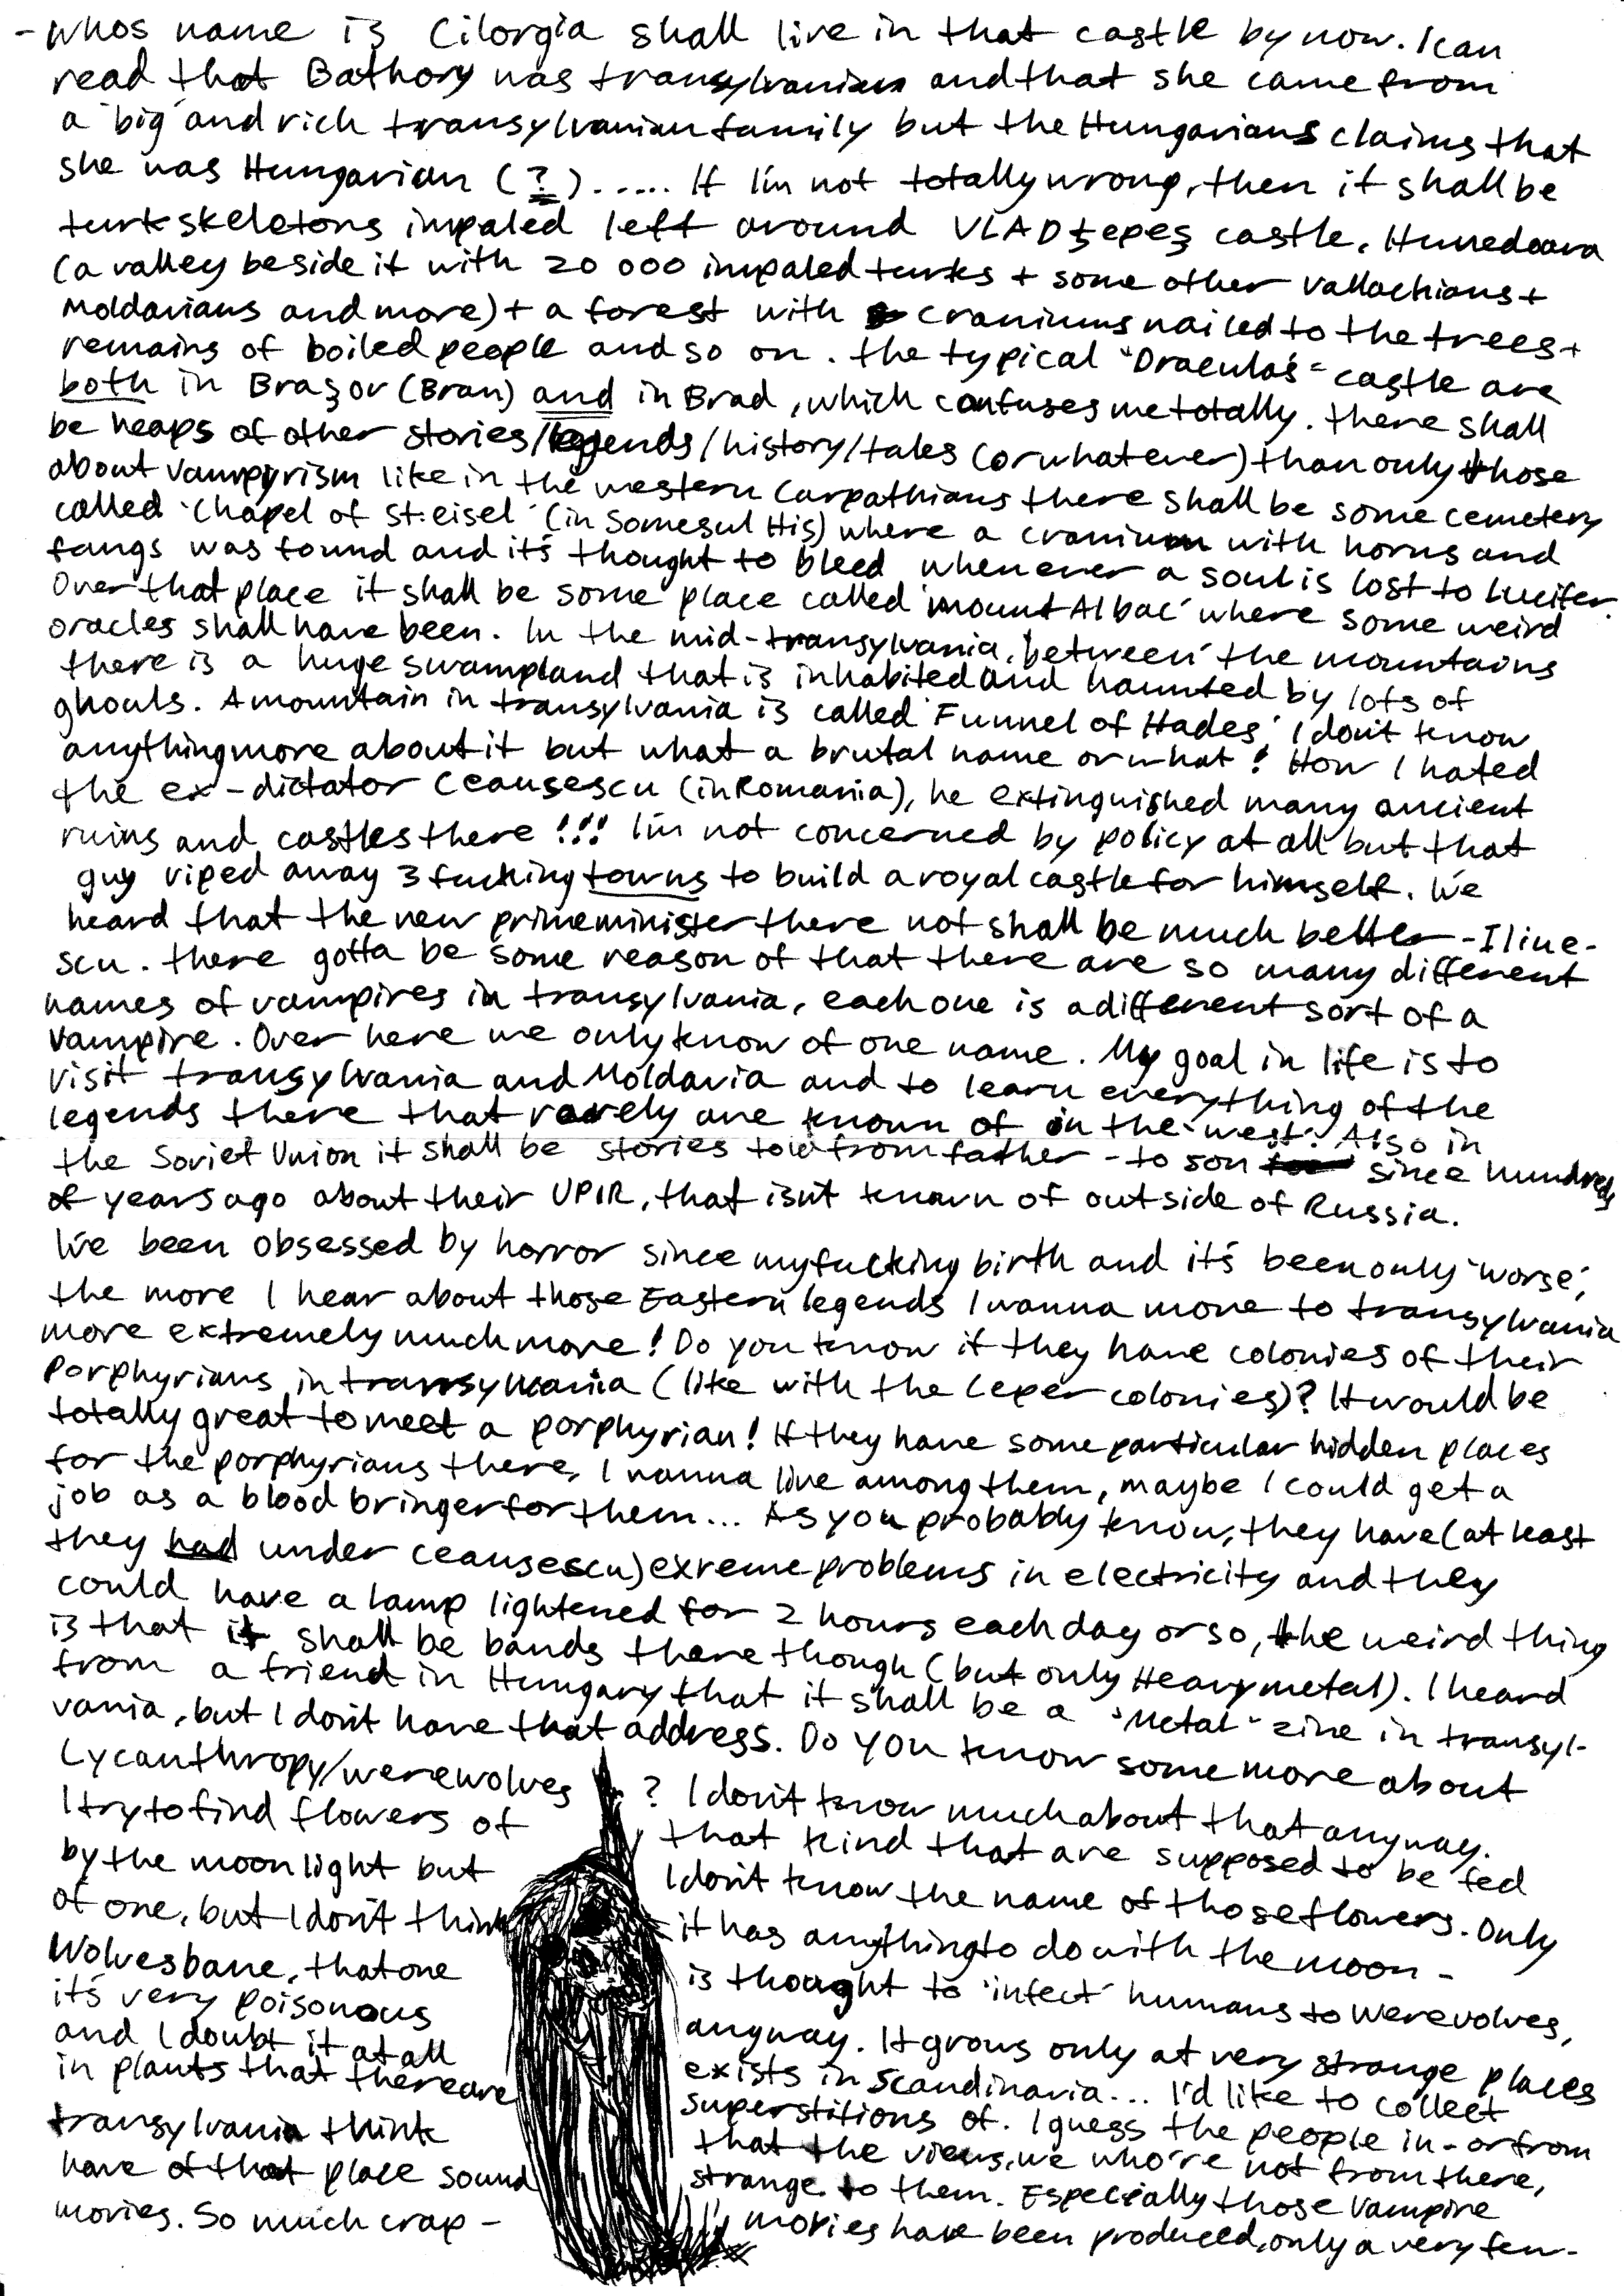 - whos name is Cilorgia shall live in that castle by now. I can
read that Bathory was transylvanian and that she came from
a 'big' and rich transylvanian family but the Hungarians claims that
she was Hungarian (?)..... If I'm not totally wrong, then it shall be
turk skeletons impaled left around VLAD ţepeş castle, Hunedoara
(a valley beside it with 20 000 impaled turks + some other Vallachians +
Moldavians and more) + a forest with craniums nailed to the trees +
remains of boiled people and so on. The typical "Dracula's" castle are
both in Braşov (Bran) and in Brad, which confuses me totally. There shall
be heaps of other stories/legends/history/tales (or whatever) than only those
about vampyrism like in the western Carpathians there shall be some cemetery
called 'Chapel of St. eisel' (in Somesul His) where a cranium with horns and
fangs was found and it's thought to bleed whenever a soul is lost to Lucifer.
Over that place it shall be some place called 'mount Albac' where some weird
oracles shall have been. In the mid-transylvania, 'between' the mountains
there is a huge swampland that is inhabited and haunted by lots of
ghouls. A mountain in transylvania is called 'Funnel of Hades' I don't know
anything more about it but what a brutal name or what! How I hated
the ex-dictator Ceausescu (in Romania), he extinguished many ancient
ruins and castles there!!! I'm not concerned by policy at all but that
guy riped away 3 fucking towns to build a royal castle for himself. We
heard that the new primeminister there not shall be much better - Iline-
scu. There gotta be some reason of that there are so many different
names of vampires in transylvania, each one is a different sort of a
vampire. Over here we only know of one name. My goal in life is to
visit transylvania and Moldavia and to learn everything of the
legends there that rarely are known of in the 'west'. Also in
the Soviet Union it shall be stories told from father - to son since hundreds
of years ago about their UPIR, that isn't known of outside of Russia.
I've been obsessed by horror since my fucking birth and it's been only 'worse',
the more I hear about those Eastern legends I wanna move to transylvania
more extremely much more! Do you know if they have colonies of their
porphyrians in transylvania (like with the leper colonies)? It would be
totally great to meet a porphyrian! If they have some particular hidden places
for the porphyrians there, I wanna live among them, maybe I could get a
job as a blood bringer for them... As you probably know, they have (at least
they had under ceausescu) exreme problems in electricity and they
could have a lamp lightened for 2 hours each day or so, the weird thing
is that it shall be bands there though (but only Heavy metal). I heard
from a friend in Hungary that it shall be a "Metal" zine in transyl-
vania, but I don't have that address. Do you know some more about
Lycanthropy/werewolves ? I don't know much about that anyway.
I try to find flowers of that kind that are supposed to be fed
by the moonlight but I don't know the name of those flowers. Only
of one, but I don't think it has anything to do with the moon -
Wolvesbane, that one is thought to 'infect' humans to werevolves,
it's very poisonous anyway. It grows only at very strange places
and I doubt it at all exists in Scandinavia... I'd like to collect
in plants that there are superstitions of. I guess the people in- or from
transylvania think that the views, we who're not from there,
have of that place sound strange to them. Especially those vampire
movies. So much crap - movies have been produced, only a very few-